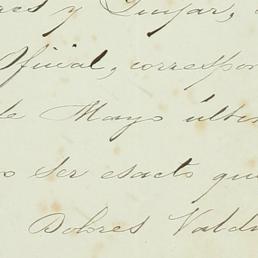 y Lugar,
oficial, correspon
de Mayo últim
ser exacto que
Dolores Vald